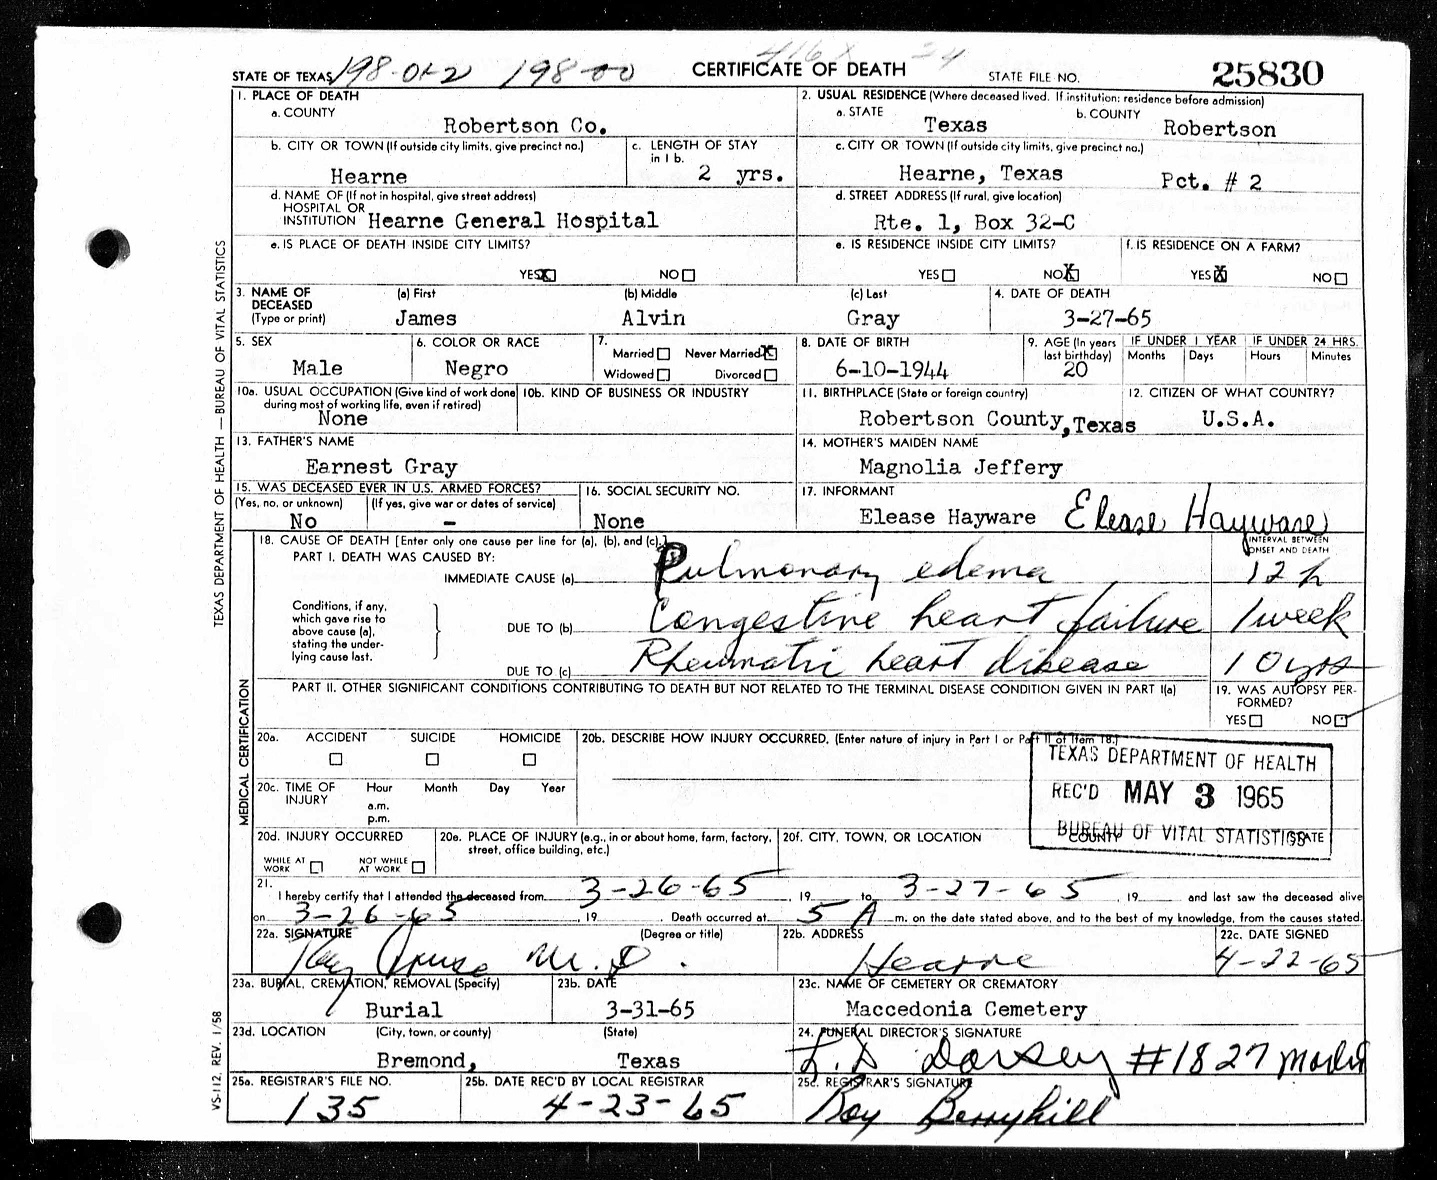 STATE OF TEXAS 198-012 198-00 CERTIFICATE OF DEATH STATE FILE NO. 25830
1. PLACE OF DEATH
a. COUNTY
Robertson Co.
2. USUAL RESIDENCE (Where deceased lived. If institution: residence before admission)
a. STATE
Texas
b. COUNTY
Robertson
b. CITY OR TOWN (If outside city limits, give precinct no.)
Hearne
c. LENGTH OF STAY
in 1 b.
2 yrs.
c. CITY OR TOWN (If outside city limits, give precinct no.)
Hearne, Texas Pct. # 2
d. NAME OF (If not in hospital, give street address)
HOSPITAL OR
INSTITUTION Hearne General Hospital
d. STREET ADDRESS (If rural, give location)
Rte. 1, Box 32-C
e. IS PLACE OF DEATH INSIDE CITY LIMITS?
YES X NO
e. IS RESIDENCE INSIDE CITY LIMITS?
YES NO X
f. IS RESIDENCE ON A FARM?
YES X NO
3. NAME OF
DECEASED
(Type or print)
(a) First
James
(b) Middle
Alvin
(c) Last
Gray
4. DATE OF DEATH
3-27-65
5. SEX
Male
6. COLOR OR RACE
Negro
7.
Married Never Married X
Widowed Divorced
8. DATE OF BIRTH
6-10-1944
9. AGE (In years
last birthday)
20
IF UNDER 1 YEAR
Months Days
IF UNDER 24 HRS.
Hours Minutes
10a. USUAL OCCUPATION (Give kind of work done
during most of working life, even if retired)
None
10b. KIND OF BUSINESS OR INDUSTRY
11. BIRTHPLACE (State or foreign country)
Robertson County, Texas
12. CITIZEN OF WHAT COUNTRY?
U.S.A.
13. FATHER'S NAME
Earnest Gray
14. MOTHER'S MAIDEN NAME
Magnolia Jeffery
15. WAS DECEASED EVER IN U.S. ARMED FORCES?
(Yes, no, or unknown) (If yes, give war or dates of service)
No -
16. SOCIAL SECURITY NO.
None
17. INFORMANT
Elease Hayware Elease Hayware
18. CAUSE OF DEATH [Enter only one cause per line for (a), (b), and (c).]
INTERVAL BETWEEN
ONSET AND DEATH
PART I. DEATH WAS CAUSED BY:
IMMEDIATE CAUSE (a) Pulmonary edema 12 h
Conditions, if any,
which gave rise to
above cause (a),
stating the under-
lying cause last.
DUE TO (b) Congestive heart failure 1 week
DUE TO (c) Rheumatic heart disease 10 yrs
PART II. OTHER SIGNIFICANT CONDITIONS CONTRIBUTING TO DEATH BUT NOT RELATED TO THE TERMINAL DISEASE CONDITION GIVEN IN PART I(a)
19. WAS AUTOPSY PER-
FORMED?
YES NO
20a. ACCIDENT SUICIDE HOMICIDE
20b. DESCRIBE HOW INJURY OCCURRED. (Enter nature of injury in Part I or Part II of Item 18.)
20c. TIME OF
INJURY
Hour Month Day Year
a.m.
p.m.
TEXAS DEPARTMENT OF HEALTH
REC'D MAY 3 1965
BUREAU OF VITAL STATISTICS
20d. INJURY OCCURRED
WHILE AT
WORK
NOT WHILE
AT WORK
20e. PLACE OF INJURY (e.g., in or about home, farm, factory,
street, office building, etc.)
20f. CITY, TOWN, OR LOCATION COUNTY STATE
21.
I hereby certify that I attended the deceased from 3-26-65, 19 to 3-27-65, 19 and last saw the deceased alive
on 3-26-65, 19 . Death occurred at 5 A m. on the date stated above, and to the best of my knowledge, from the causes stated.
22a. SIGNATURE (Degree or title)
M.D.
22b. ADDRESS
Hearne
22c. DATE SIGNED
4-22-65
23a. BURIAL, CREMATION, REMOVAL (Specify)
Burial
23b. DATE
3-31-65
23c. NAME OF CEMETERY OR CREMATORY
Maccedonia Cemetery
23d. LOCATION (City, town, or county) (State)
Bremond, Texas
24. FUNERAL DIRECTOR'S SIGNATURE
L.D Dorsey #1827
25a. REGISTRAR'S FILE NO.
135
25b. DATE REC'D BY LOCAL REGISTRAR
4-23-65
25c. REGISTRAR'S SIGNATURE
Roy Berryhill
TEXAS DEPARTMENT OF HEALTH — BUREAU OF VITAL STATISTICS
MEDICAL CERTIFICATION
VS-112, REV. 1/58